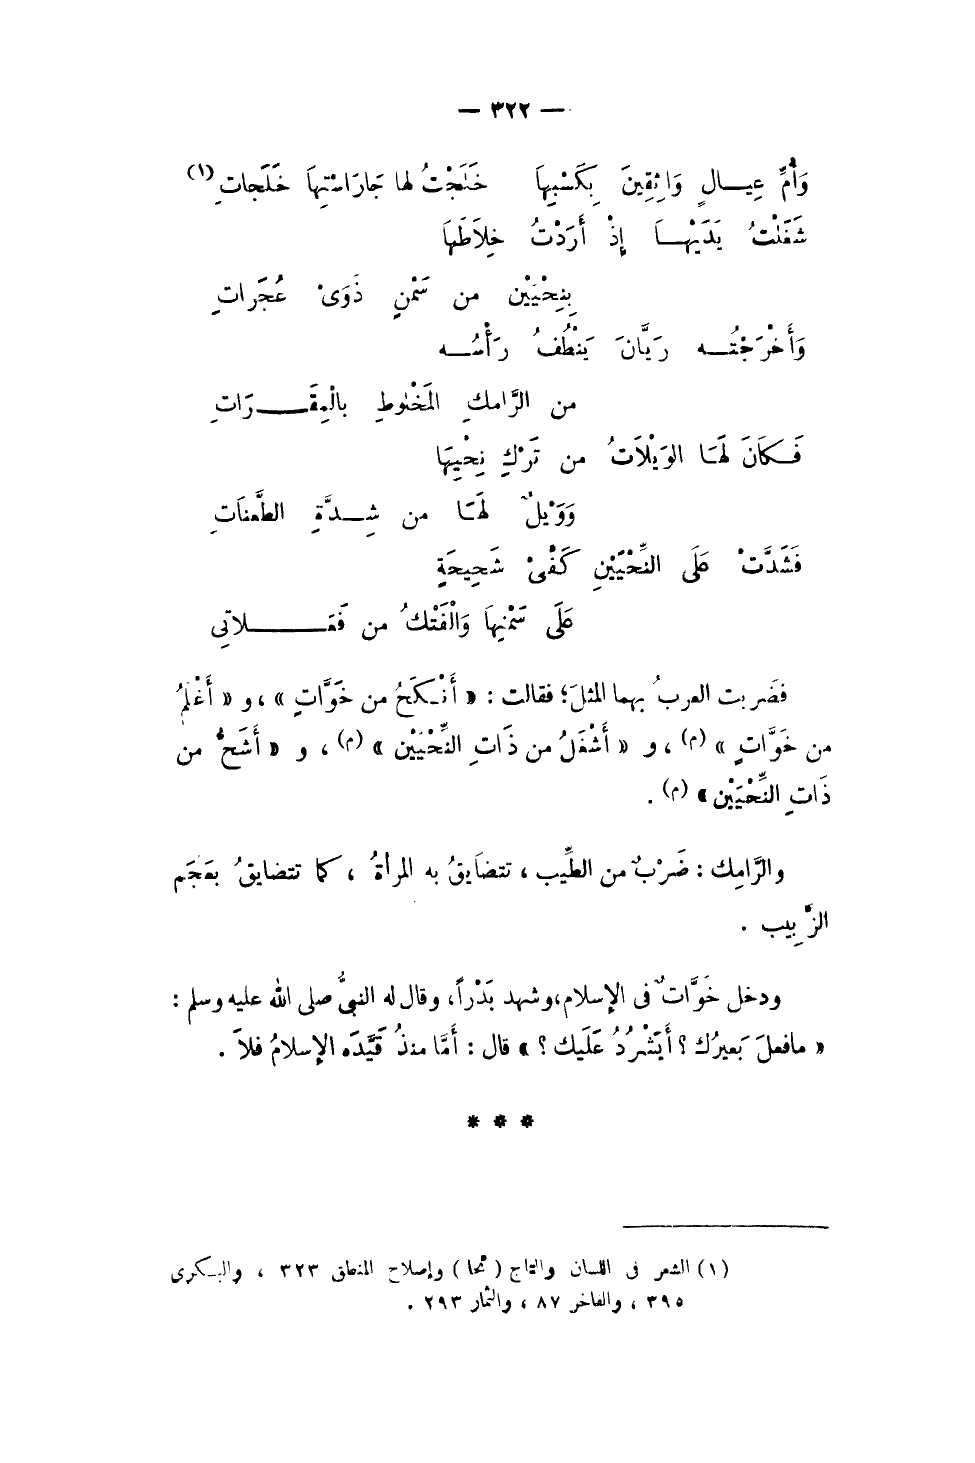 — ٣٢٢ —
وَأُمِّ عِيــالٍ وَاثِقِينَ بِكَسْبِهَا خَلَجْتُ لها جَارَاسْتِهَا خَلَجاتِ (١)
شَغَلْتُ يَدَيْهــا إِذْ أَرَدْتُ خِلَاطَهَا
بِنِحْيَيْنِ من سَمْنٍ ذَوَىْ عُجَرَاتِ
وَأَخْرَجْتُــه رَيَّانَ يَنْطُفُ رَأْسُــه
من الرَّامكِ المَخْلوطِ بالْمِقَــرَاتِ
فَـكَانَ لَهَـا الوَيْلَاتُ من تَرْكِ نِحْيِهَا
وَوَيْلٌ لَهَـا من شِــدَّةِ الطَّعَناتِ
فَشَدَّتْ عَلَى النِّحْيَيْنِ كَفَّىْ شَحِيحَةٍ
عَلَى سَمْنِهَا وَالْفَتْكُ من فَعَــلاتِى
فضَربت العربُ بهما المثلَ؛ فقالت : « أَنْـكَحُ من خَوَّاتٍ » ، و « أَغْلَمُ
من خَوَّاتٍ » (م) ، و « أَشْغَلُ من ذَاتِ النِّحْيَيْن » (م) ، و « أَشَحُّ من
ذَاتِ النِّحْيَيْن » (م) .
والرَّامِك : ضَرْبٌ من الطِّيب ، تتضَايقُ به المرأةُ ، كما تتضايقُ بعَجَم
الزَّبِيب .
ودخل خَوَّاتٌ فى الإسلام، وشهد بَدْراً، وقال له النبىُّ صلى الله عليه وسلم :
« مافعلَ بَعيرُك ؟ أَيَشْرُدُ عَلَيك ؟ » قال : أَمَّا منذُ قَيَّدَه الإسلامُ فلاَ .
* * *
(١) الشعر فى اللسان والتاج ( نحا ) وإصلاح المنطق ٣٢٣ ، والبـكرى
٣٩٥ ، والفاخر ٨٧ ، والثمار ٢٩٣ .